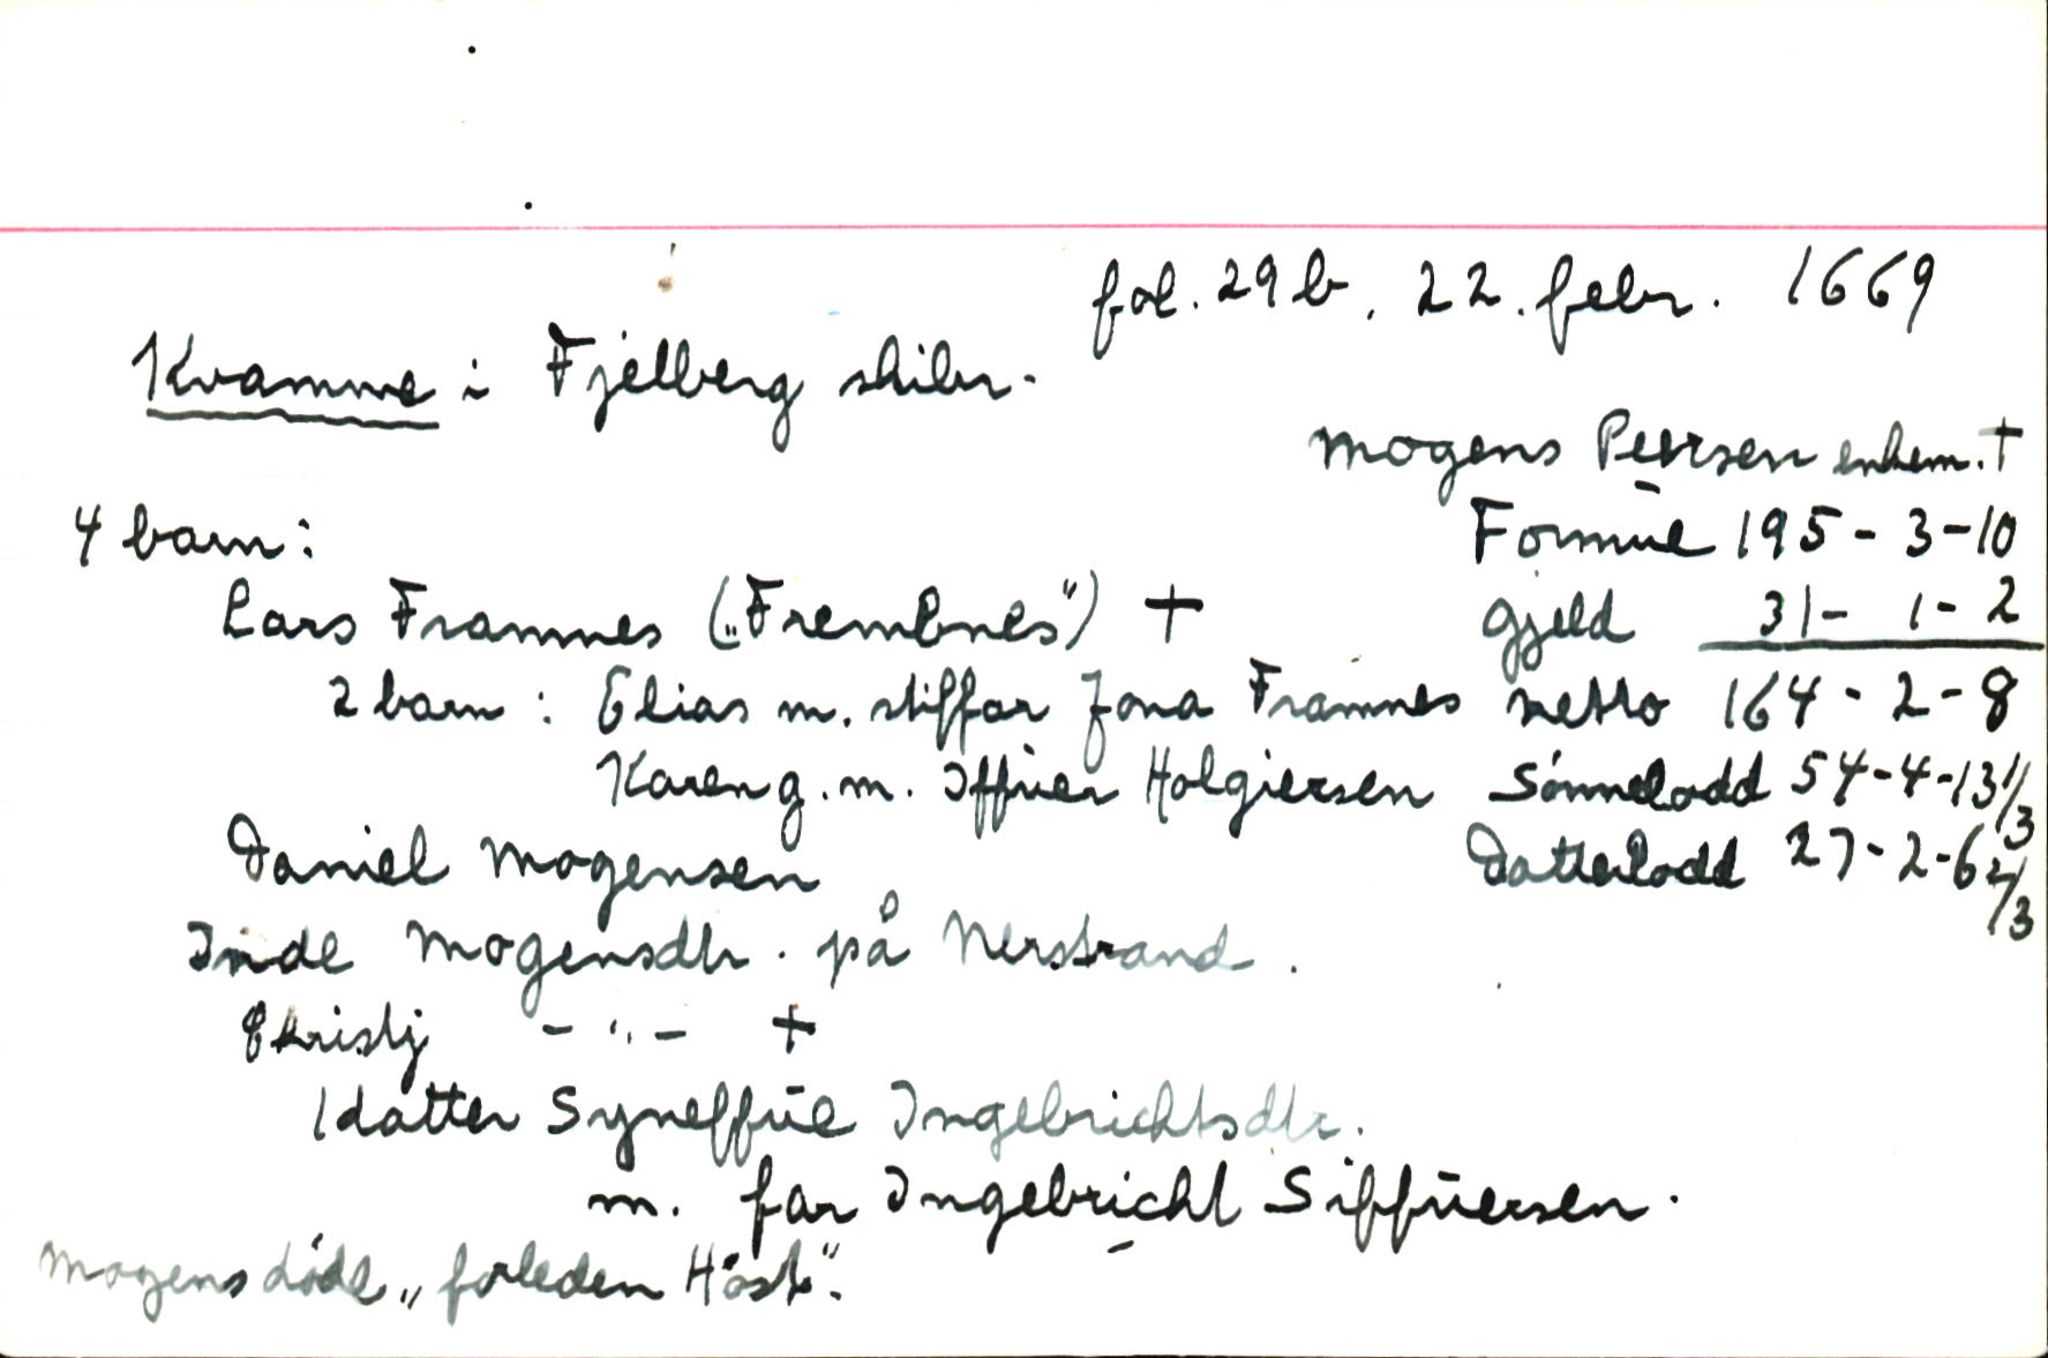 fol. 29 b, 22. febr. 1669
Kvamme i Fjelberg skibr.
Mogens Peersen enkem. †
4 barn: Formue 195 - 3 - 10
Lars Framnes („Frembnes") † gjeld 31 - 1 - 2
2 barn: Elias m. stiffar Jona Framnes netto 164 - 2 - 8
Karen g. m. Iffuer Holgiersen Sönnelodd 54 - 4 - 13 1/3
Daniel Mogensen Datterlodd 27 - 2 - 6 2/3
Inde Mogensdtr. på Nerstrand.
Christj - " - †
1 datter Syneffue Ingebrichtsdtr.
m. far Ingebricht Siffuersen.
Mogens döde „forleden Höst".